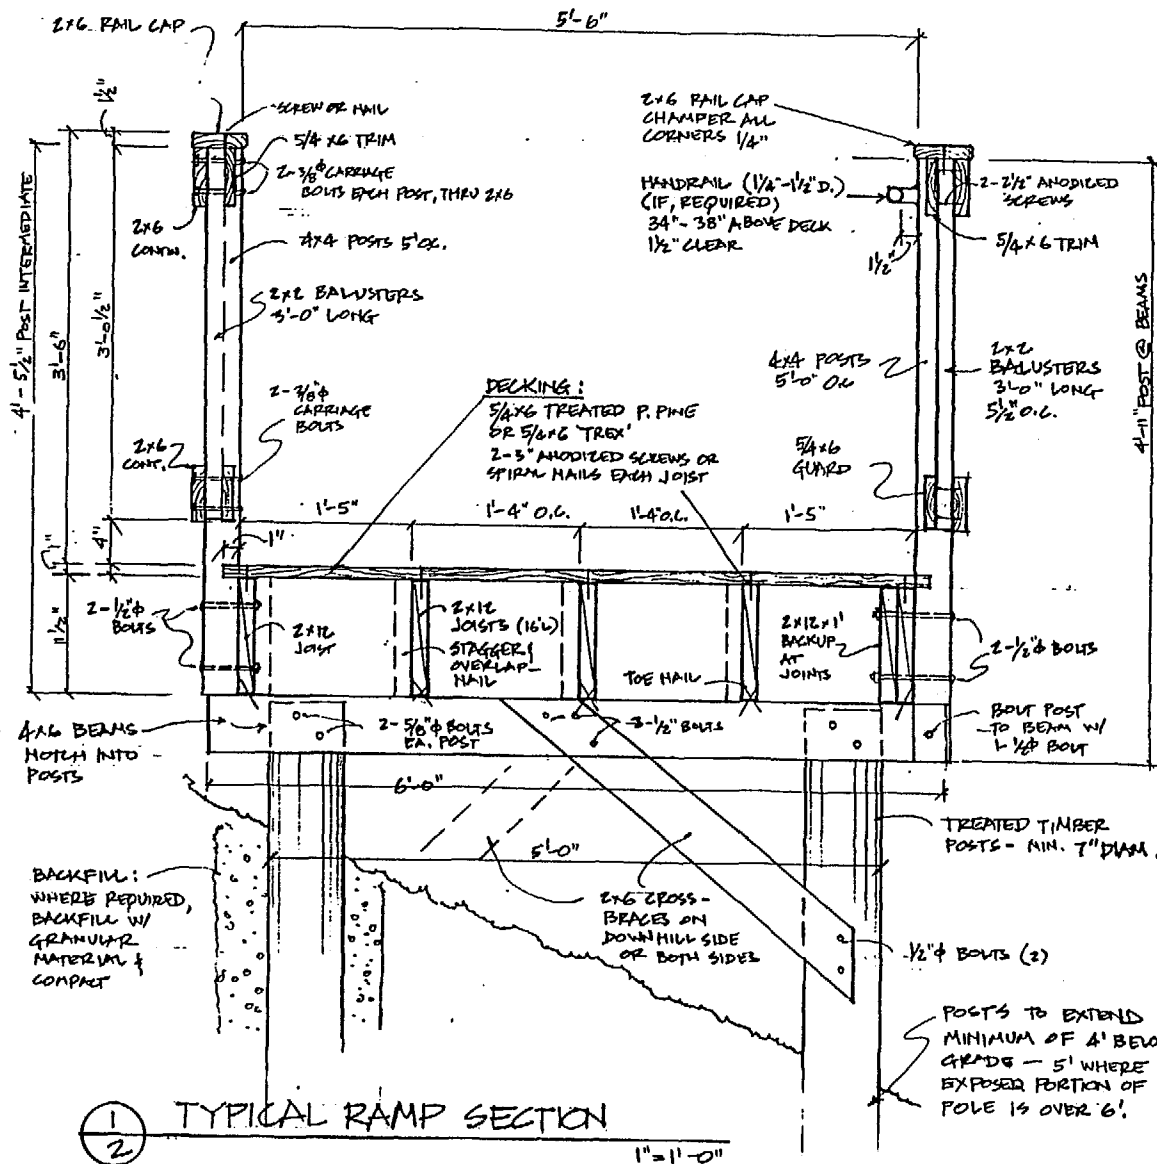 2x6 RAIL CAP
5'-6"
1½"
SCREW OR NAIL
5/4 x6 TRIM
2-3/8"φ CARRIAGE
BOLTS EACH POST, THRU 2x6
2x6
CONTIN.
4x4 POSTS 5' O.C.
2x2 BALUSTERS
3'-0" LONG
4'-5½" POST INTERMEDIATE
3'-6"
3'-0½"
2x6 RAIL CAP
CHAMFER ALL
CORNERS 1/4"
HANDRAIL (1¼"-1½" D.)
(IF, REQUIRED)
34"-38" ABOVE DECK
1½" CLEAR
2-2½" ANODIZED
SCREWS
5/4 x 6 TRIM
1½"
4x4 POSTS
5'-0" O.C.
2x2
BALUSTERS
3'-0" LONG
5½" O.C.
4'-11" POST @ BEAMS
2-3/8"φ
CARRIAGE
BOLTS
2x6
CONT.
DECKING:
5/4x6 TREATED P. PINE
OR 5/4x6 'TREX'
2-3" ANODIZED SCREWS OR
SPIRAL NAILS EACH JOIST
5/4x6
GUARD
1'-5"
1'-4" O.C.
1'-4" O.C.
1'-5"
1"
4"
1"
11½"
2-½"φ
BOLTS
2x12
JOIST
2x12
JOISTS (16'L)
STAGGER &
OVERLAP-
NAIL
TOE NAIL
2x12x1'
BACKUP
AT
JOINTS
2-½"φ BOLTS
4x6 BEAMS
NOTCH INTO
POSTS
2-5/8"φ BOLTS
EA. POST
3-½" BOLTS
BOLT POST
TO BEAM W/
1-½φ BOLT
6'-0"
5'-0"
TREATED TIMBER
POSTS - MIN. 7" DIAM.
BACKFILL:
WHERE REQUIRED,
BACKFILL W/
GRANULAR
MATERIAL &
COMPACT
2x6 CROSS-
BRACES ON
DOWNHILL SIDE
OR BOTH SIDES
½"φ BOLTS (2)
POSTS TO EXTEND
MINIMUM OF 4' BELO
GRADE — 5' WHERE
EXPOSED PORTION OF
POLE IS OVER 6'.
1
2
TYPICAL RAMP SECTION
1"=1'-0"